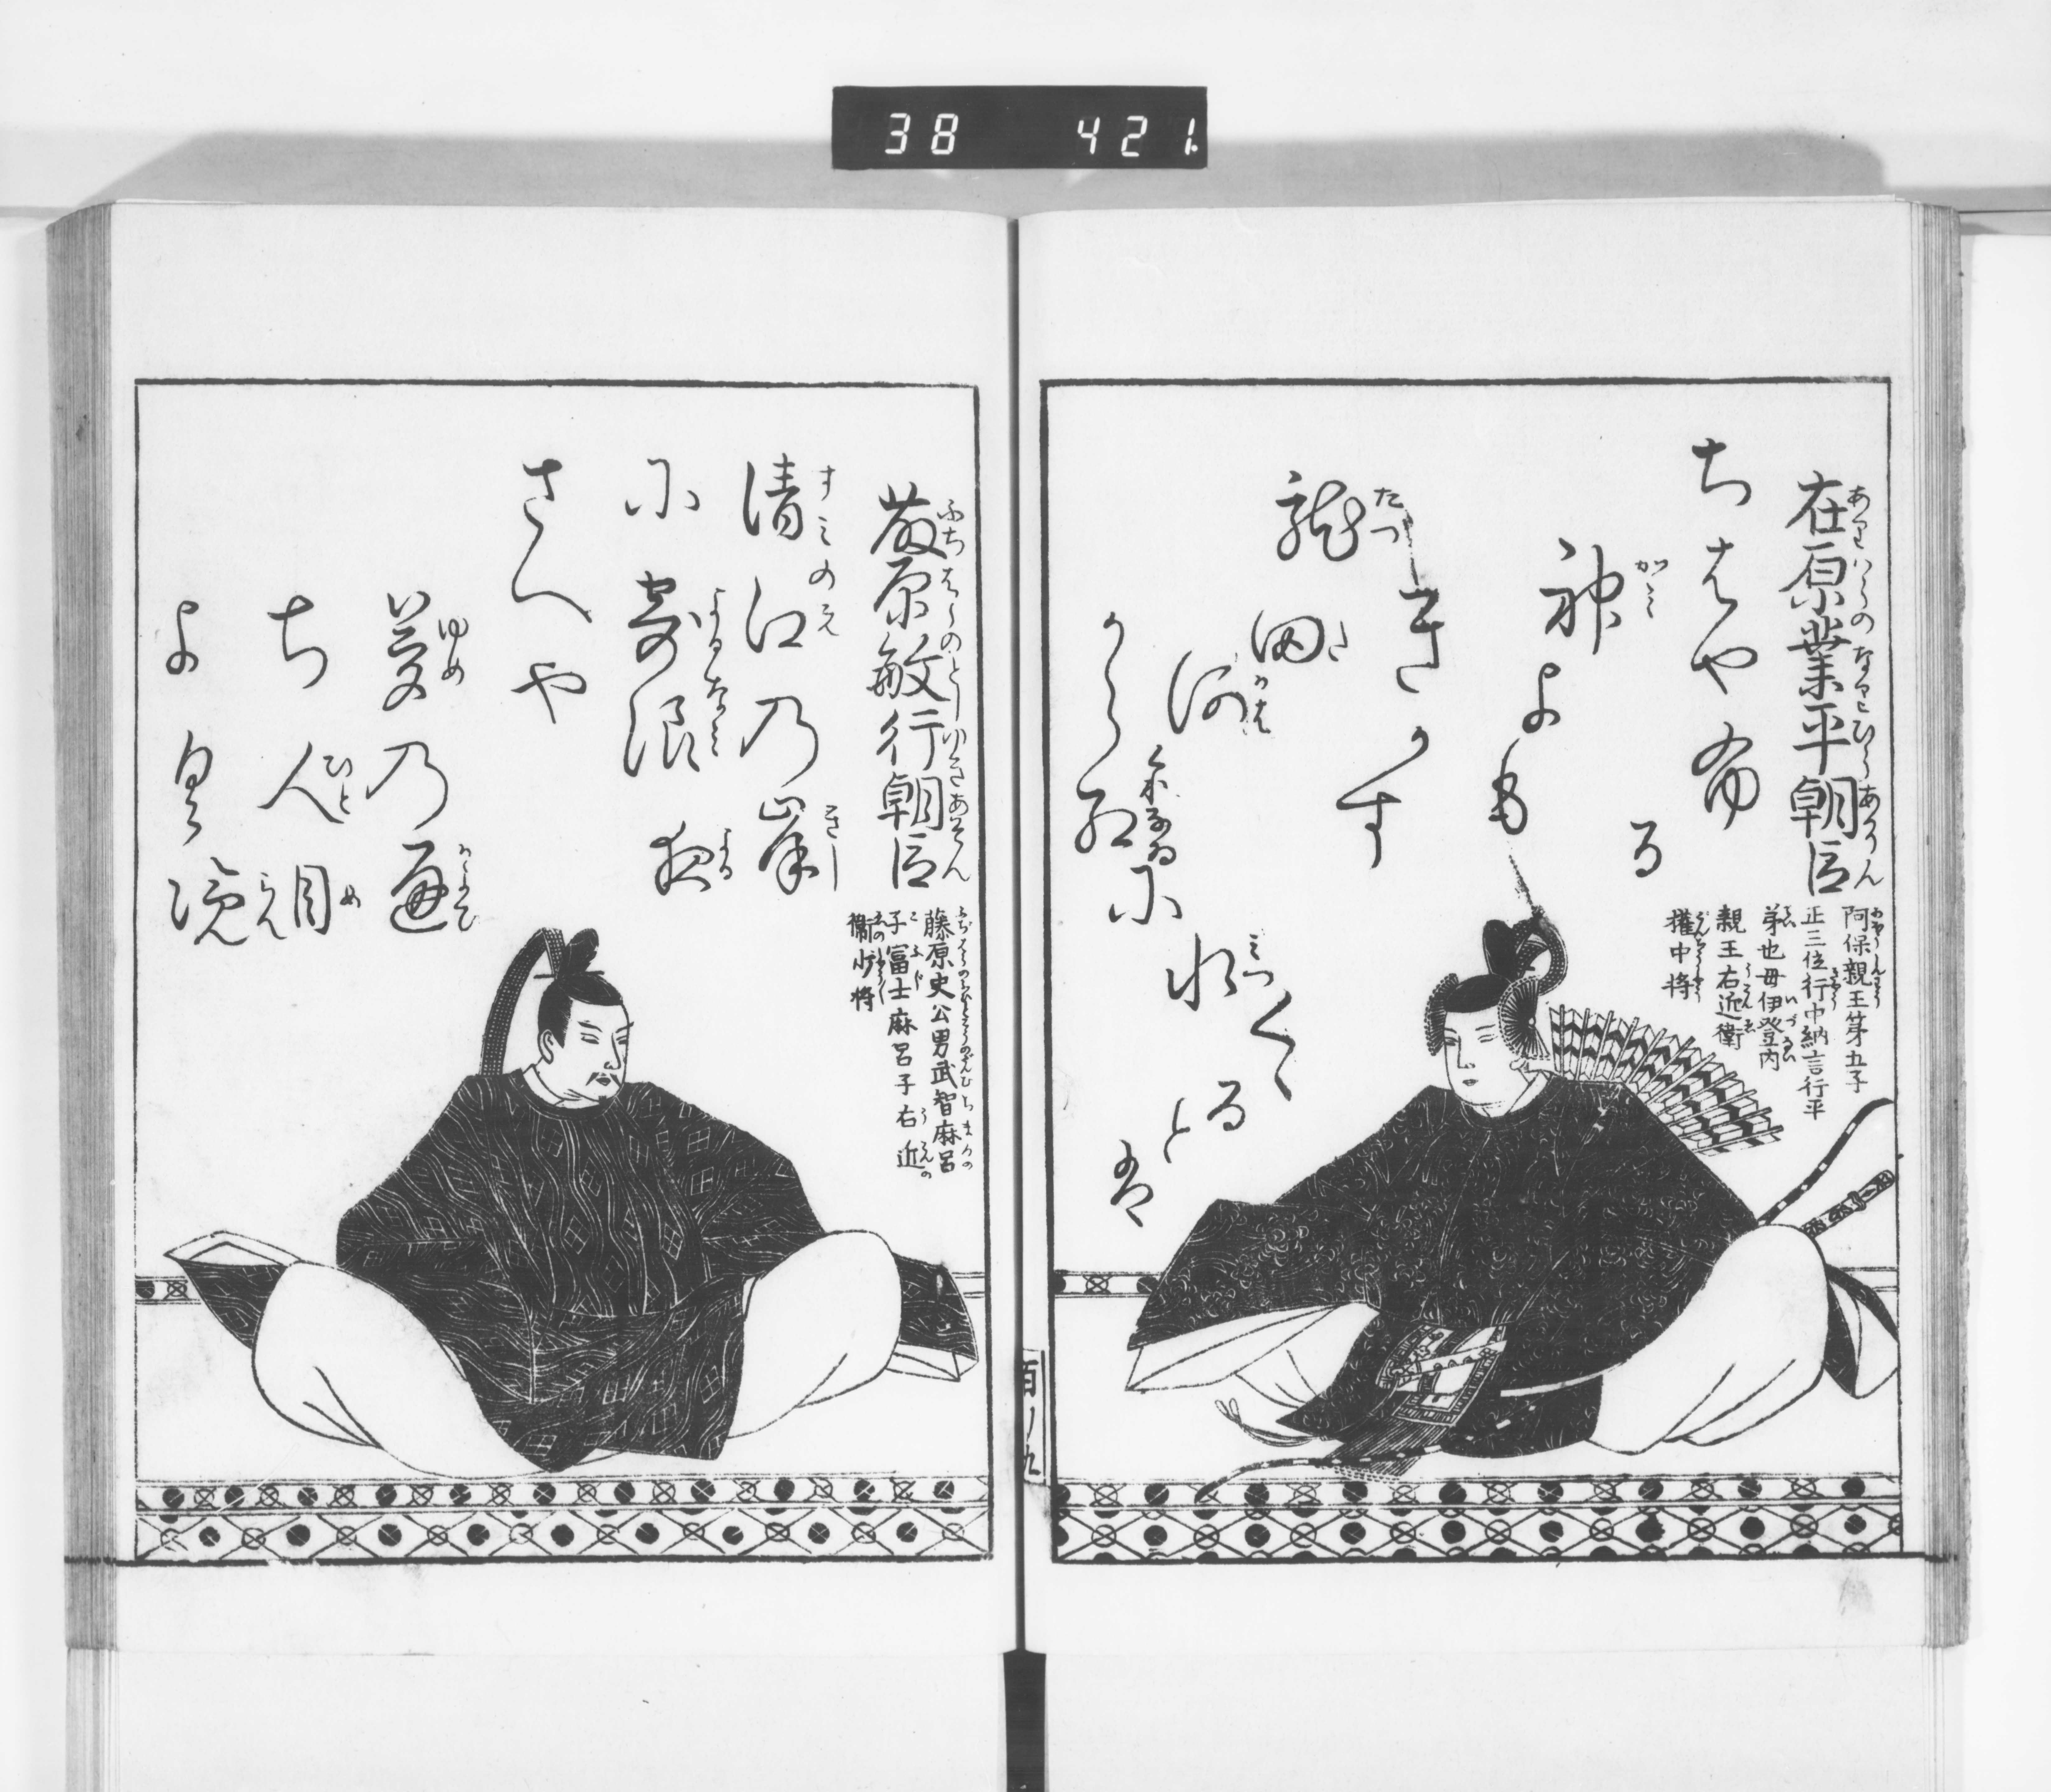 38 421
在原業平朝臣
阿保親王第五子
正三位行中納言行平
弟也母伊登内
親王右近衛
権中将
ちはや布
る
神よも
きかす
龍田
河
からく紅
尓
水くく
る
と
者
百ノ九
藤原敏行朝臣
藤原史公男武智麻呂
子冨士麻呂子右近
衛少将
清江乃岸
尓寄浪
夜
さへや
夢乃通
ち人目
よく